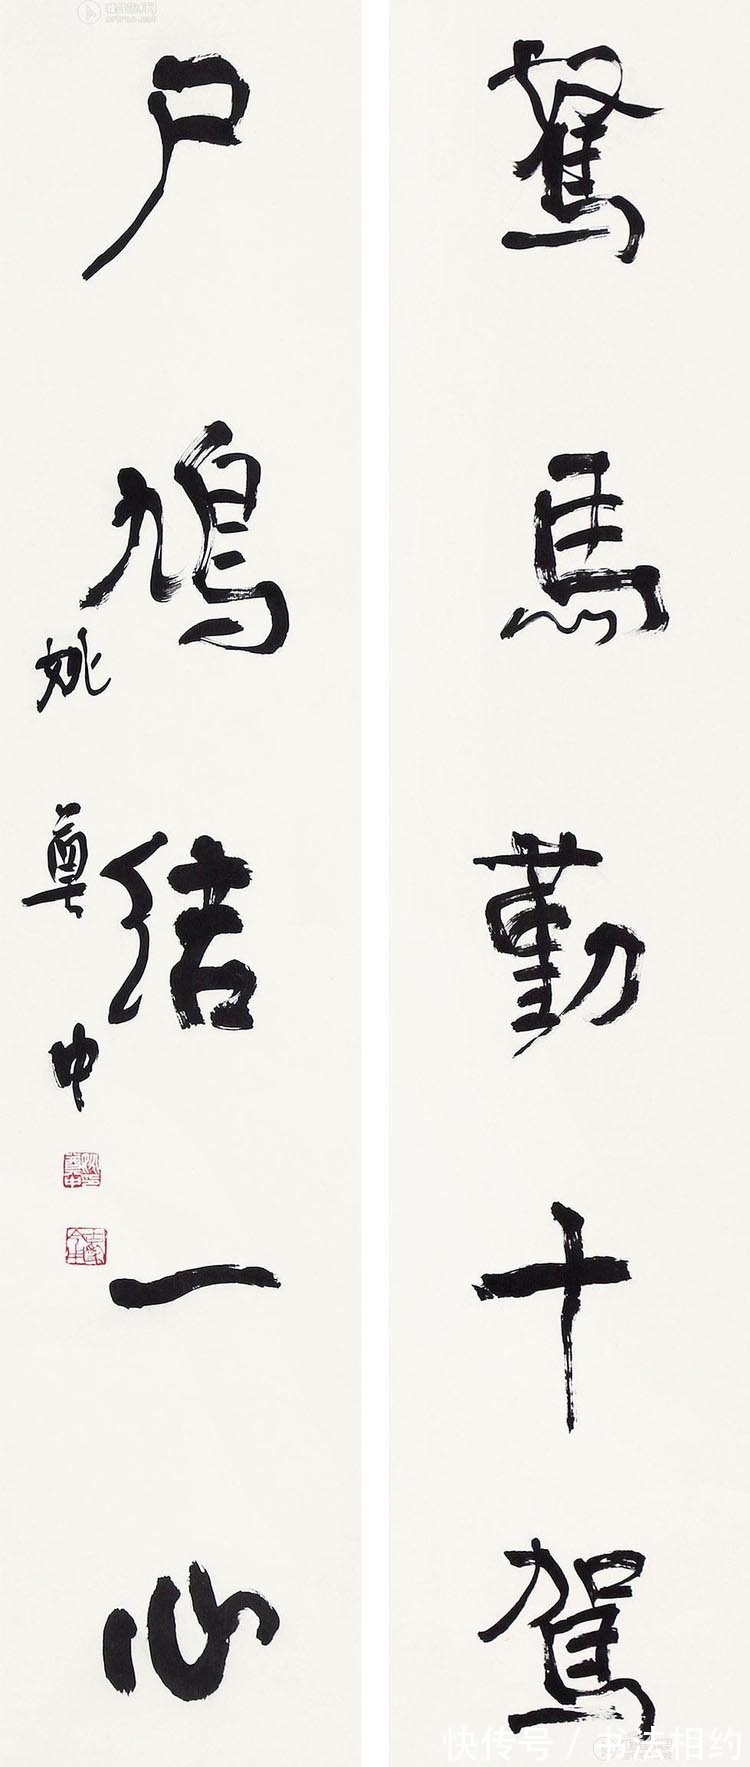 駑馬勤十駕
尸鳩結一心
姚奠中
快传号/书法相约